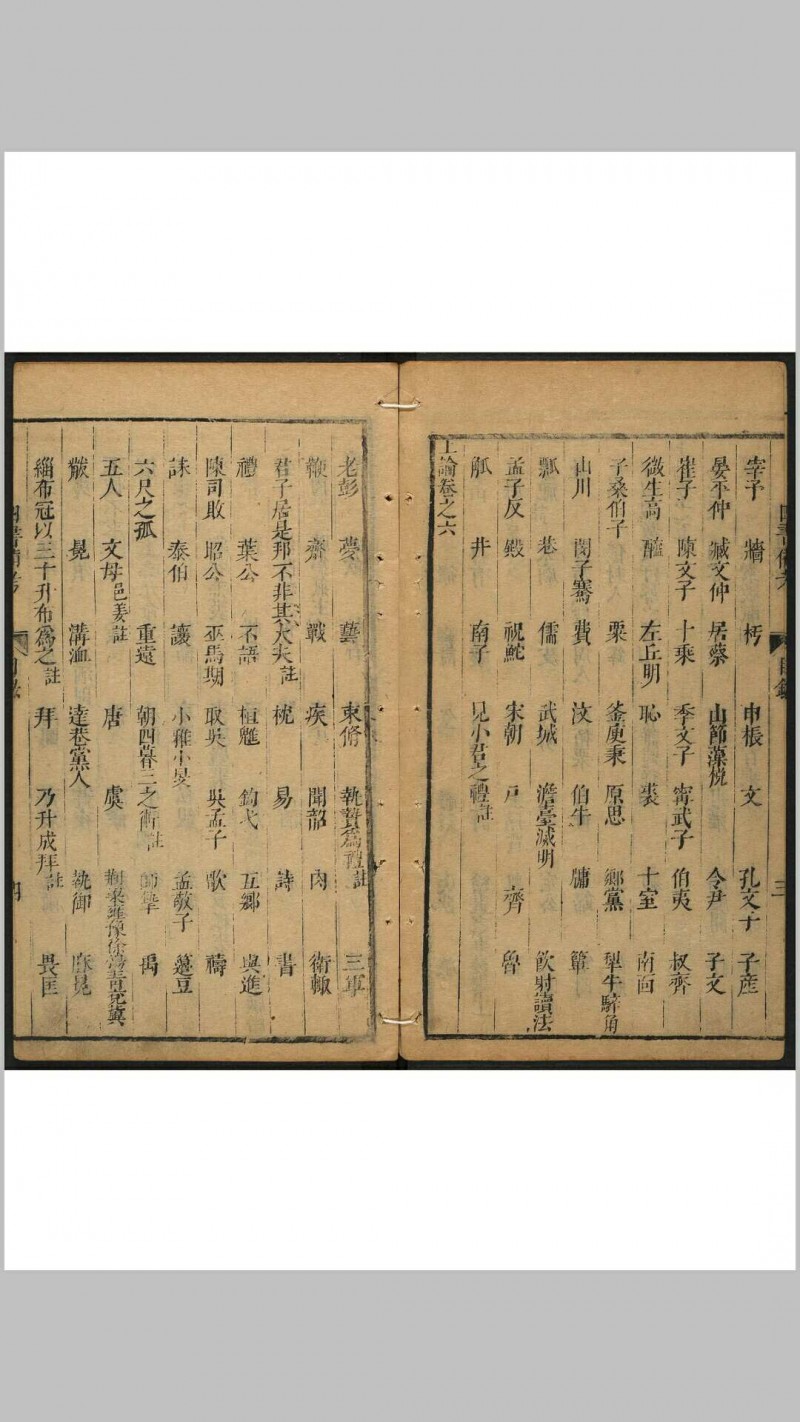 宰予 牆 杇 申棖 文 孔文子 子產
晏平仲 臧文仲 居蔡 山節藻梲 令尹 子文
崔子 陳文子 十乘 季文子 甯武子 伯夷 叔齊
微生高 醯 左丘明 恥 裘 十室 南面
子桑伯子 粟 釜庾秉 原思 鄉黨 犁牛騂角
山川 閔子騫 費 汶 伯牛 牖 簞
瓢 巷 儒 武城 澹臺滅明 飲射讀法
孟子反 殿 祝鮀 宋朝 戶 齊 魯
觚 井 南子 見小君之禮註
上論卷之六
老彭 夢 藝 束脩 執贄為禮註 三軍
鞭 齋 戰 疾 聞韶 肉 衛輒
君子居是邦不非其大夫註 枕 易 詩 書
禮 葉公 不語 桓魋 鈞弋 互鄉 與進
陳司敗 昭公 巫馬期 取吳 吳孟子 歌 禱
誄 泰伯 讓 小雅小旻 孟敬子 籩豆
六尺之孤 重遠 朝四暮三之術註 師摯 禹
五人 文母邑姜註 唐 虞 荊梁雍豫徐揚青兗冀
黻 冕 溝洫 達巷黨人 執御 麻冕
緇布冠以三十升布為之註 拜 乃升成拜註 畏匡